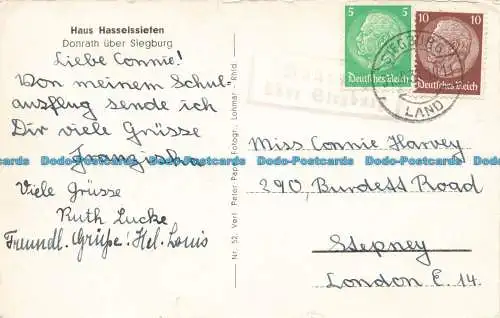 Haus Hasselssiefen
Donrath über Siegburg
Liebe Connie!
Von meinem Schul-
ausflug sende ich
Dir viele Grüsse
Franziska
Viele Grüsse
Ruth Lucke
Freundl. Grüße! Hel. Louis
Nr. 52. Verl. Peter Fotogr. Lohmar Rhld
5
5
Deutsches Reich
10
Deutsches Reich
SIEGBURG
LAND
Miss Connie Harvey
290, Burdett Road
Stepney
London E. 14.
Dodo-Postcards Dodo-Postcards Dodo-Postcards Dodo-Postcards